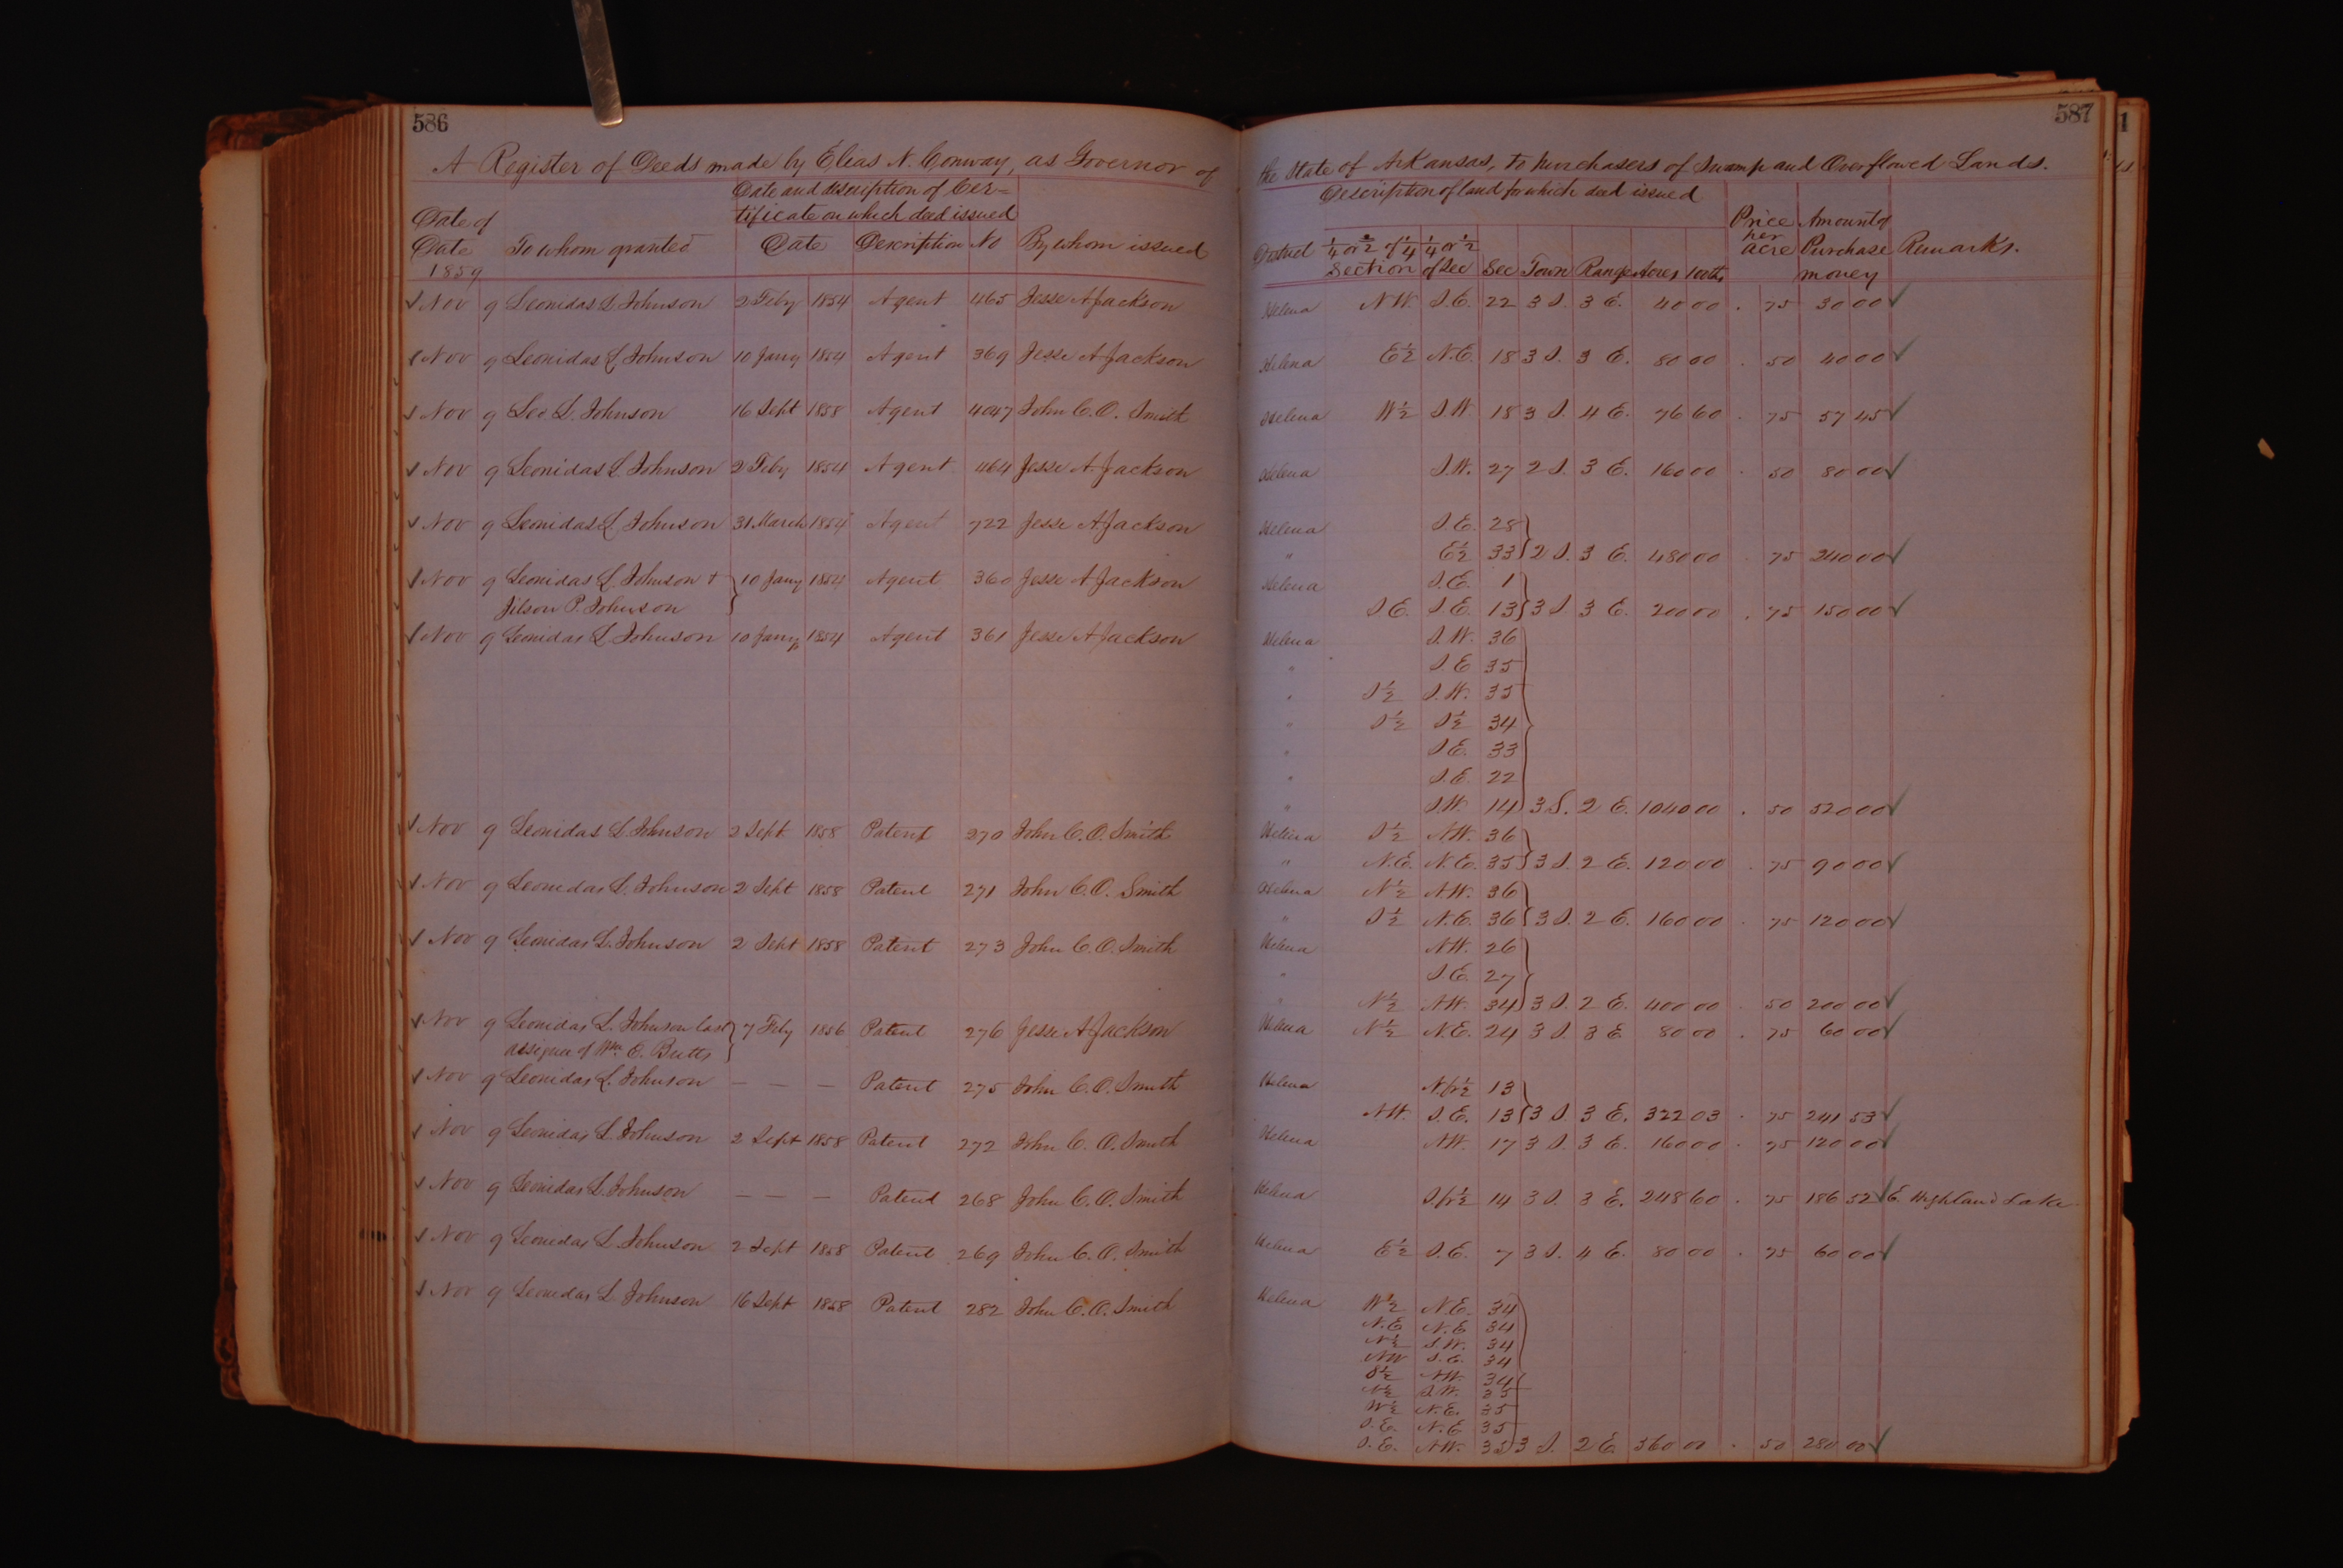 586
A Register of Deeds made by Elias N. Conway, as Governor of
Date and discription of Cer=
tificate on which deed issued
Date of
Date To whom granted Date Description No By whom issued
1859
Nov 9 Leonidas L Johnson 2 Feby 1854 Agent 465 Jesse A Jackson
Nov 9 Leonidas L Johnson 10 Jany 1854 Agent 369 Jesse A Jackson
Nov 9 Leo L. Johnson 16 Sept 1858 Agent 4047 John C. O. Smith
Nov 9 Leonidas L. Johnson 2 Feby 1854 Agent 464 Jesse A Jackson
Nov 9 Leonidas L. Johnson 31 March 1854 Agent 722 Jesse A Jackson
Nov 9 Leonidas L. Johnson + 10 Jany 1854 Agent 360 Jesse A Jackson
Jilson P. Johnson
Nov 9 Leonidas L Johnson 10 Jany 1854 Agent 361 Jesse A Jackson
Nov 9 Leonidas L Johnson 2 Sept 1858 Patent 270 John C. O. Smith
Nov 9 Leonidas L. Johnson 2 Sept 1858 Patent 271 John C. O. Smith
Nov 9 Leonidas L. Johnson 2 Sept 1858 Patent 273 John C. O. Smith
Nov 9 Leonidas L. Johnson last 7 Feby 1856 Patent 276 Jesse A Jackson
assignee of Wm E. Butts
Nov 9 Leonidas L. Johnson — — — Patent 275 John C. O. Smith
Nov 9 Leonidas L. Johnson 2 Sept 1858 Patent 272 John C. O. Smith
Nov 9 Leonidas L. Johnson — — — Patent 268 John C. O. Smith
Nov 9 Leonidas L. Johnson 2 Sept 1858 Patent 269 John C. O. Smith
Nov 9 Leonidas L Johnson 16 Sept 1858 Patent 282 John C. O. Smith
587
the State of Arkansas, to purchasers of Swamp and Overflowed Lands.
Description of land for which deed issued
Price Amount of
District 1/4 or 1/2 of 1/4 1/4 or 1/2 per acre Purchase Remarks.
Section of Sec Sec Town Range Acres 100ths money
Helena N.W. S.E. 22 3 S. 3 E. 40 00 . 75 30 00
Helena E 1/2 N.E. 18 3 S. 3 E. 80 00 . 50 40 00
Helena W 1/2 S.W 18 3 S. 4 E. 76 60 . 75 57 45
Helena S.W. 27 2 S. 3 E. 160 00 . 50 80 00
Helena S.E. 28
" E 1/2 33 2 S. 3 E. 480 00 . 75 240 00
Helena S.E. 1
S.E. S.E. 13 3 S. 3 E. 200 00 . 75 150 00
Helena S.W. 36
" S.E 35
" S 1/2 S.W. 35
" S 1/2 S 1/2 34
" S.E. 33
" S.E. 22
" S.W. 14 3 S. 2 E. 1040 00 . 50 520 00
Helena S 1/2 N.W. 36
" N.E. N.E. 35 3 S 2 E. 120 00 . 75 90 00
Helena N 1/2 N.W. 36
" S 1/2 N.E. 36 3 S. 2 E. 160 00 . 75 120 00
Helena N.W. 26
" S.E. 27
" N 1/2 N.W. 34 3 S. 2 E. 400 00 . 50 200 00
Helena N 1/2 N.E. 24 3 S. 3 E 80 00 . 75 60 00
Helena N. fr 1/2 13
N.W. S.E. 13 3 S. 3 E. 322 03 . 75 241 53
Helena N.W. 17 3 S. 3 E. 160 00 . 75 120 00
Helena S. fr 1/2 14 3 S. 3 E. 248 60 . 75 186 52 E. Highland Lake
Helena E 1/2 S.E. 7 3 S. 4 E. 80 00 . 75 60 00
Helena W 1/2 N.E. 34
N.E N.E 34
N 1/2 S.W. 34
NW S.E. 34
S 1/2 N.W. 34
N 1/2 S.W. 35
W 1/2 N.E. 35
S.E. N.E 35
S.E. N.W. 35 3 S. 2 E. 560 00 . 50 280 00
1